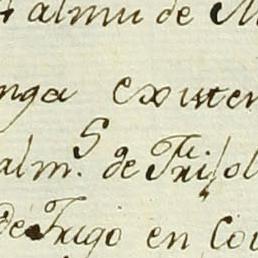 almu de
nga existen
alm.s de Trigo
de Trigo en Co